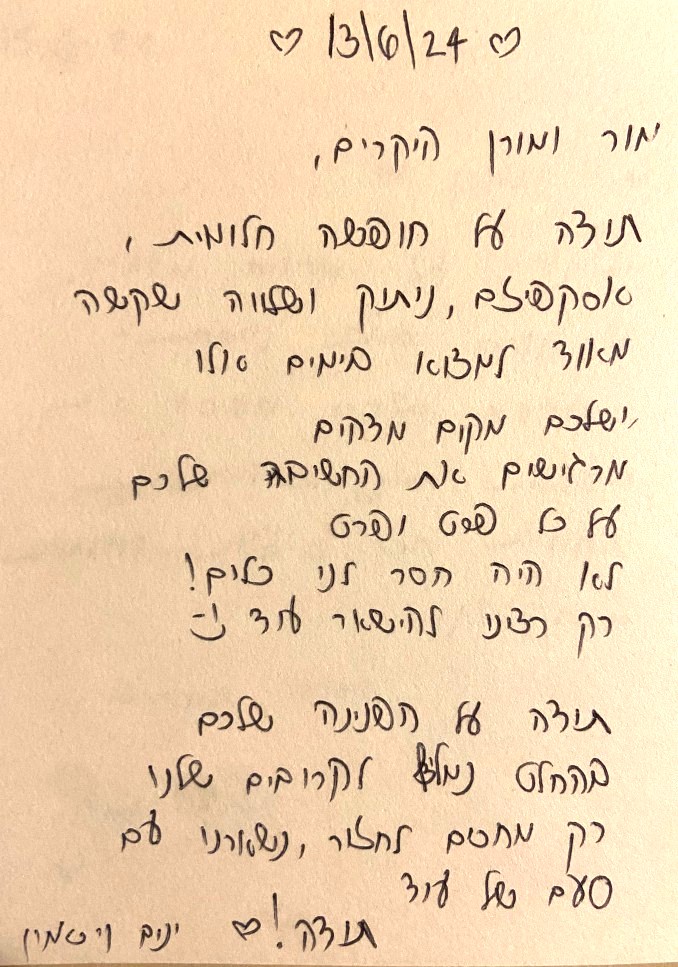 ♡ 13/6/24 ♡
ומורן היקרים,
תודה על חופשה חלומית,
אסקפיזם, ניתוק ושלווה שקשה
מאוד למצוא בימים אלו
ישלכם מקום מדהים
מרגישים את החשיבה שלכם
על כל פרט ופרט
לא היה חסר לנו כלום!
רק רצינו להישאר עוד :-)
תודה על הפנינה שלכם
בהחלט נמליץ לקרובים שלנו
רק מחכים לחזור, נשארנו עם
טעם של עוד
תודה! ♡